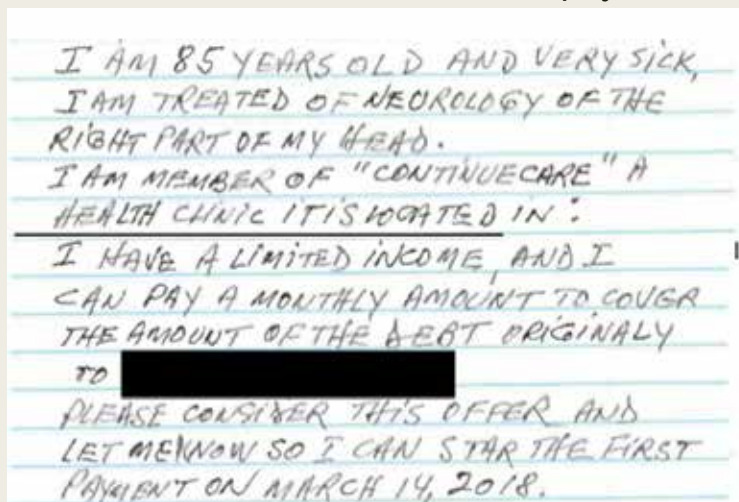 I AM 85 YEARS OLD AND VERY SICK,
I AM TREATED OF NEUROLOGY OF THE
RIGHT PART OF MY HEAD.
I AM MEMBER OF "CONTINUECARE" A
HEALTH CLINIC IT IS LOCATED IN:
I HAVE A LIMITED INCOME, AND I
CAN PAY A MONTHLY AMOUNT TO COVER
THE AMOUNT OF THE DEBT ORIGINALY
TO
PLEASE CONSIDER THIS OFFER AND
LET ME KNOW SO I CAN STAR THE FIRST
PAYMENT ON MARCH 14, 2018.